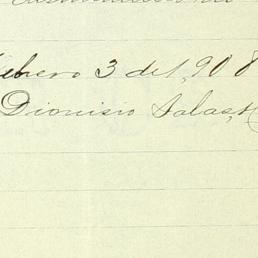 ebrero 3 de 1,908
Dionisio Salas,